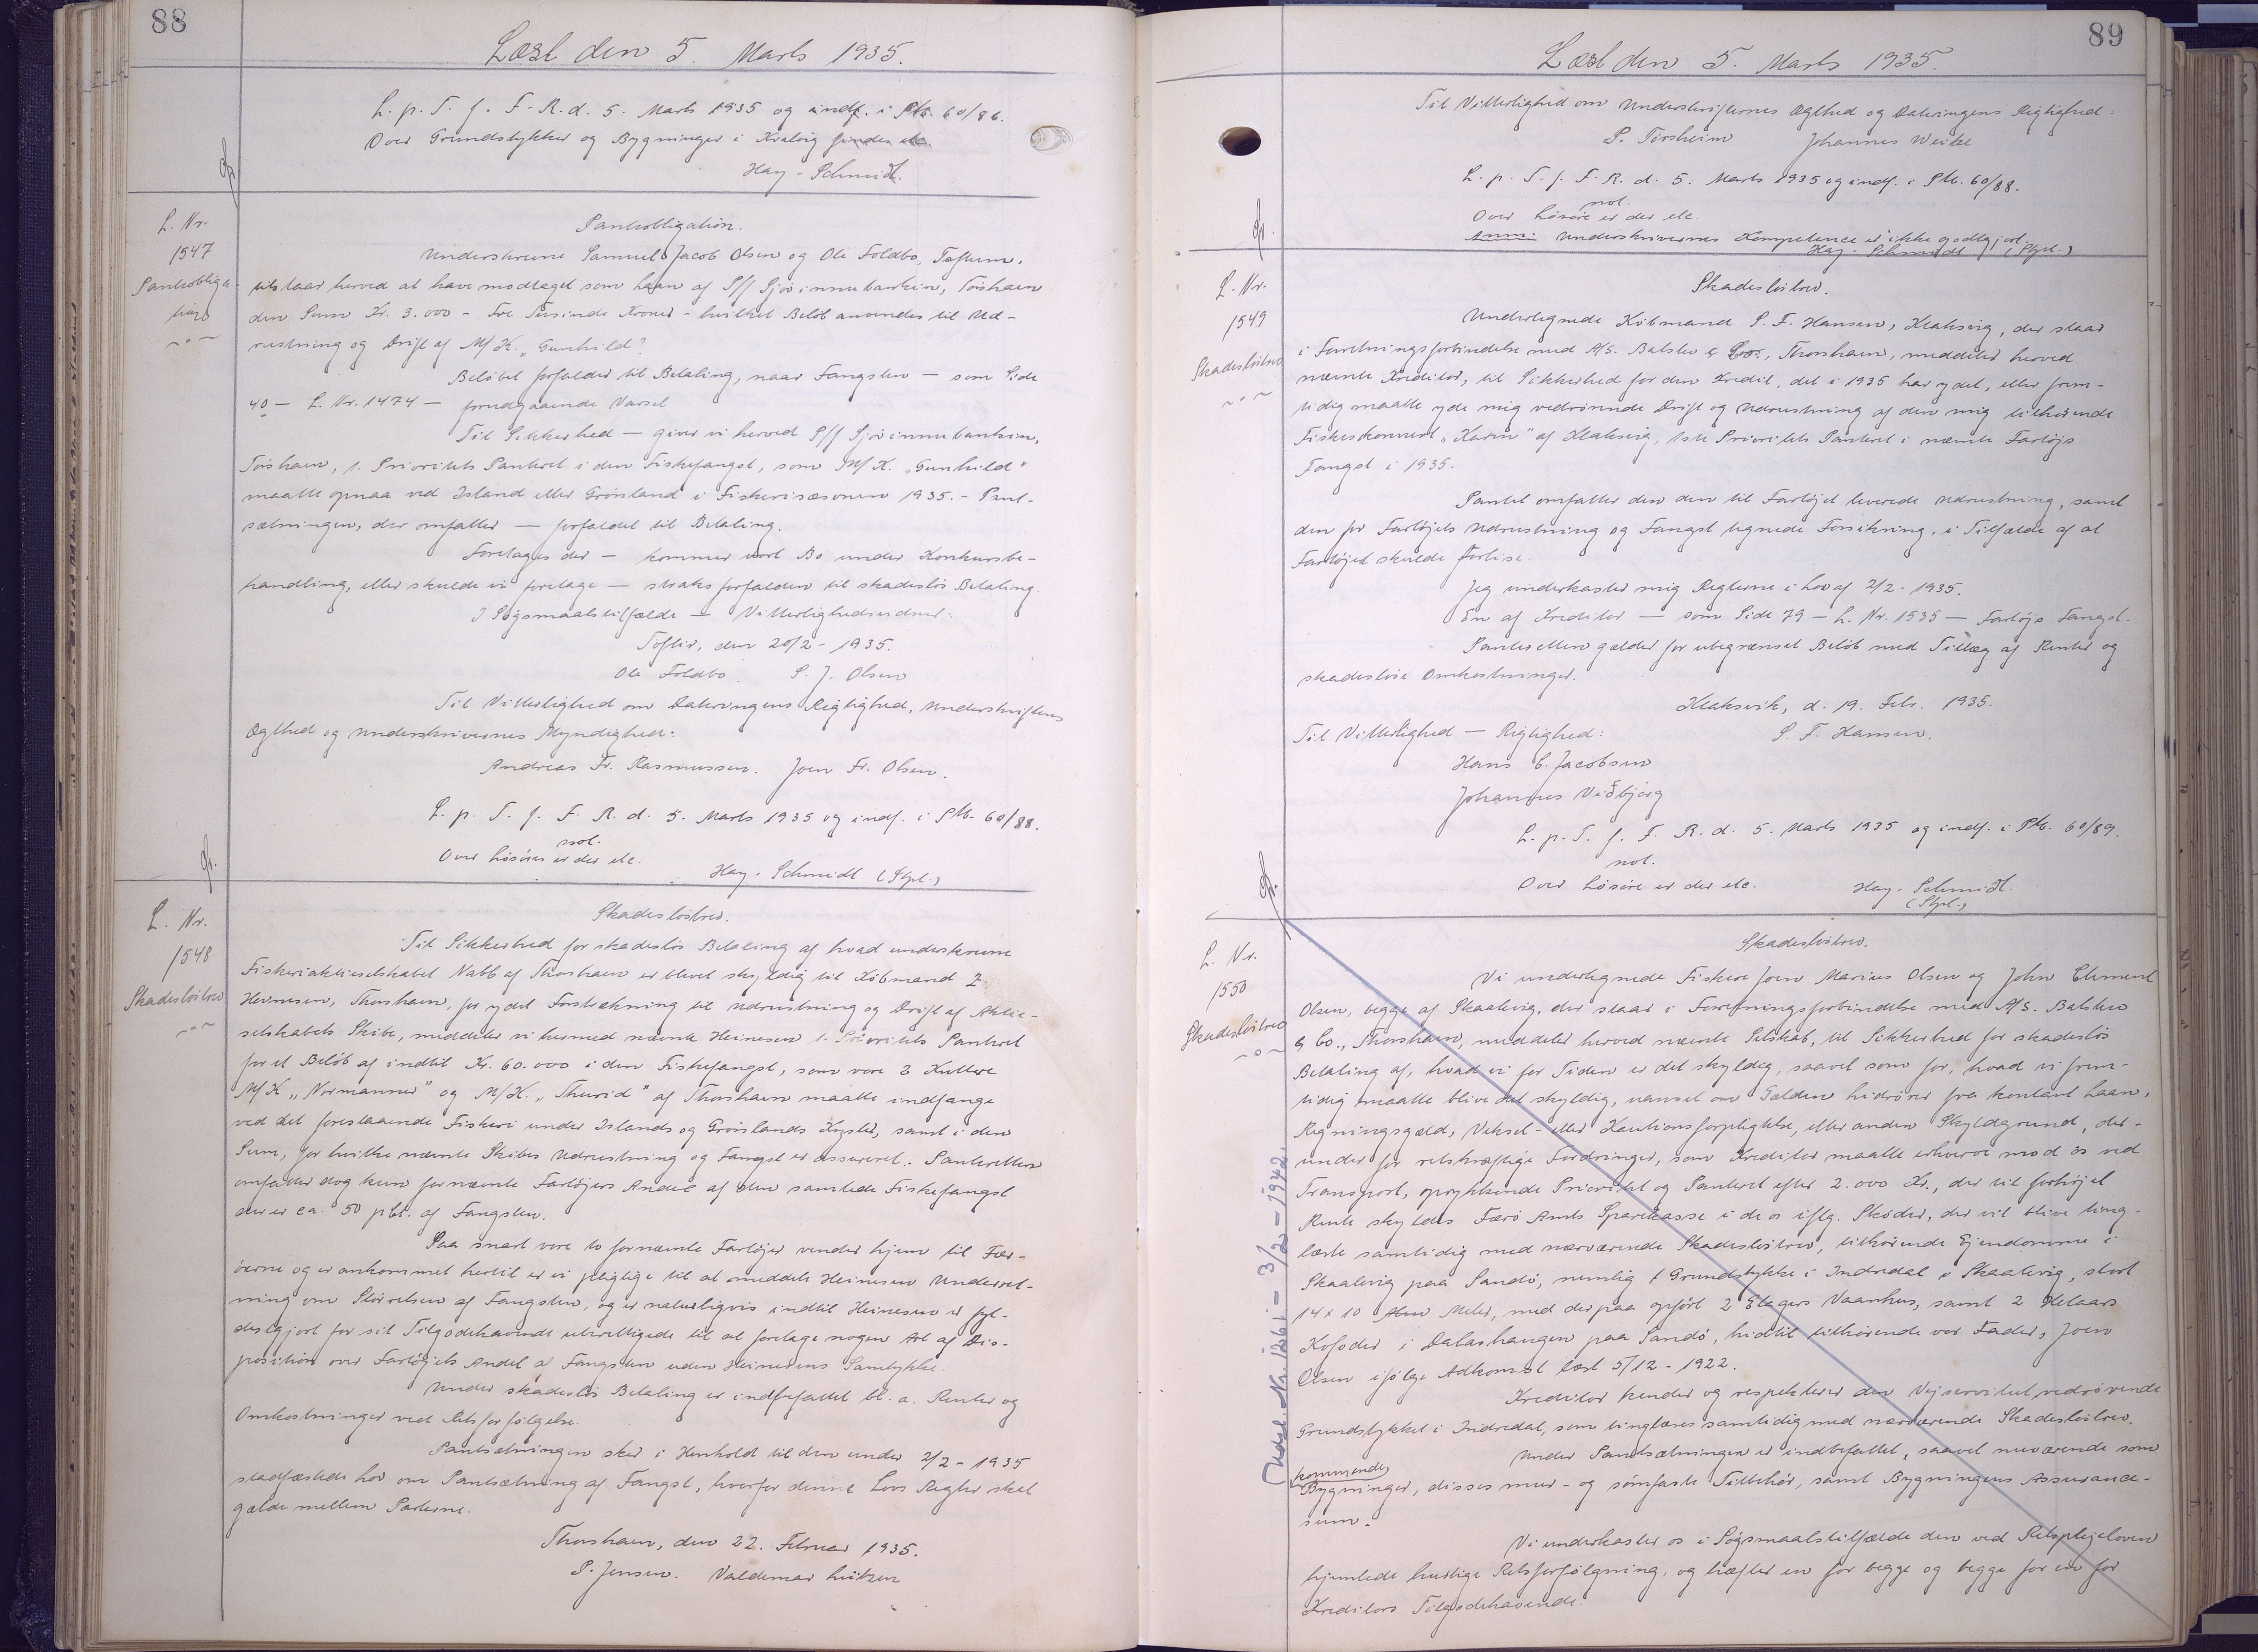 88
Læst den 5. Marts 1935.
L. p. T. f. F. R. d. 5. Marts 1935 og indf. i Ptb. 60/86.
Over Grundstykker og Bygninger i Kvalvig
Hay-Schmidt.
L. Nr.
1547
Pantobliga-
tion
Pantobligation.
Underskrevne Samuel Jacob Olsen og Ole Foldbo, Toftum,
tilstaar herved at have modtaget som Laan af P/f Sjóvinnubankin, Tórshavn
den Sum Kr. 3.000 - Tre Tusinde Kroner - hvilket Beløb anvendes til Ud-
rustning og Drift af M/K. „Gunhild".
Beløbet forfalder til Betaling, naar Fangsten — som Side
40 — L. Nr. 1474 — forudgaaende Varsel
Til Sikkerhed — giver vi herved P/f Sjóvinnubankin,
Tórshavn, 1. Prioritets Panteret i den Fiskefangst, som M/K. „Gunhild"
maatte opnaa ved Island eller Grønland i Fiskerisæsonen 1935. - Pant-
sætningen, der omfatter — forfaldet til Betaling.
Foretages der — kommer vort Bo under Konkursbe-
handling, eller skulde vi foretage — straks forfalden til skadesløs Betaling.
I Søgsmaalstilfælde — Vitterlighedsvidner:
Toftir, den 20/2 - 1935.
Ole Foldbo. S. J. Olsen
Til Vitterlighed om Dateringens Rigtighed, Underskriftens
Ægthed og Underskrivernes Myndighed:
Andreas Fr. Rasmussen. Joen Fr. Olsen.
L. p. T. f. F. R. d. 5. Marts 1935 og indf. i Ptb. 60/88.
not.
Over Løsøre er der etc.
Hay-Schmidt (Stpl.)
L. Nr.
1548
Skadesløsbrev
Skadesløsbrev.
Til Sikkerhed for skadesløs Betaling af hvad underskrevne
Fiskeriaktieselskabet Nabb af Thorshavn er blevet skyldig til Købmand Z.
Heinesen, Thorshavn, for ydet Forstrækning til Udrustning og Drift af Aktie-
selskabets Skibe, meddeler vi hermed nævnte Heinesen 1. Prioritets Panteret
for et Beløb af indtil Kr. 60.000 i den Fiskefangst, som vore 2 Kuttere
M/K „Normanner" og M/K. „Thurid" af Thorshavn maatte indfange
ved det forestaaende Fiskeri under Islands og Grønlands Kyster, samt i den
Sum, for hvilke nævnte Skibes Udrustning og Fangst er assureret. Panteretten
omfatter dog kun fornævnte Fartøjers Andel af den samlede Fiskefangst
der er ca. 50 pCt. af Fangsten.
Saa snart vore to fornævnte Fartøjer vender hjem til Fær-
øerne og er ankommet hertil er vi pligtige til at meddele Heinesen Underret-
ning om Størrelsen af Fangsten, og er naturligvis indtil Heinesen er fyl-
destgjort for sit Tilgodehavende uberettigede til at foretage nogen Art af Dis-
position over Fartøjets Andel af Fangsten uden Heinesens Samtykke.
Under skadesløs Betaling er indbefattet bl. a. Renter og
Omkostninger ved Retsforfølgelse.
Pantsætningen sker i Henhold til den under 2/2 - 1935
stadfæstede Lov om Pantsætning af Fangst, hvorfor denne Lovs Regler skal
gælde mellem Parterne.
Thorshavn, den 22. Februar 1935.
P. Jensen. Valdemar Lützen
89
Læst den 5. Marts 1935.
Til Vitterlighed om Underskrifternes Ægthed og Dateringens Rigtighed:
P. Tórsheim Johannes Weihe
L. p. T. f. F. R. d. 5. Marts 1935 og indf. i Ptb. 60/88.
not.
Over Løsøre er der etc.
Anm: Underskrivernes Kompetence er ikke godtgjort.
Hay-Schmidt (Stpl.)
L. Nr.
1549
Skadesløsbrev
Skadesløsbrev.
Undertegnede Købmand S. F. Hansen, Klaksvig, der staar
i Forretningsforbindelse med A/S. Balslev & Co., Thorshavn, meddeler herved
nævnte Kreditor, til Sikkerhed for den Kredit, det i 1935 har ydet, eller frem-
tidig maatte yde mig vedrørende Drift og Udrustning af den mig tilhørende
Fiskeskonnert „Karin" af Klaksvig, 1ste Prioritets Panteret i nævnte Fartøjs
Fangst i 1935.
Pantet omfatter den den til Fartøjet leverede Udrustning, samt
den for Fartøjets Udrustning og Fangst tegnede Forsikring, i Tilfælde af at
Fartøjet skulde forlise.
Jeg underkaster mig Reglerne i Lov af 2/2 - 1935.
En af Kreditor — som Side 79 — L. Nr. 1535 — Fartøjs Fangst.
Panteretten gælder for ubegrænset Beløb med Tillæg af Renter og
skadesløse Omkostninger.
Klaksvik, d. 19. Febr. 1935.
Til Vitterlighed — Rigtighed: S. F. Hansen.
Hans C. Jacobsen
Johannes Viðbjørg
L. p. T. f. F. R. d. 5. Marts 1935 og indf. i Ptb. 60/89.
not.
Over Løsøre er der etc. Hay-Schmidt.
(Stpl.)
L. Nr.
1550
Skadesløsbrev
Skadesløsbrev.
Vi undertegnede Fiskere Joen Marius Olsen og John Clement
Olsen, begge af Skaalevig, der staar i Forretningsforbindelse med A/S. Balslev
& Co., Thorshavn, meddeler herved nævnte Selskab, til Sikkerhed for skadesløs
Betaling af, hvad vi for Tiden er det skyldig, saavel som for, hvad vi frem-
tidig maatte blive det skyldig, uanset om Gælden hidrører fra kontant Laan,
Regningsgæld, Veksel- eller Kautionsforpligtelse, eller anden Skyldgrund, der-
under for retskraftige Fordringer, som Kreditor maatte erhverve mod os ved
Transport, oprykkende Prioritet og Panteret efter 2.000 Kr., der til forhøjet
Rente skyldes Færø Amts Sparekasse i de os iflg. Skøder, der vil blive ting-
læste samtidig med nærværende Skadesløsbrev, tilhørende Ejendomme i
Skaalevig paa Sandø, nemlig 1 Grundstykke i Indredal i Skaalevig, stort
14 x 10 Meter, med derpaa opført 2 Etagers Vaanhus, samt 2 Helaars
Kofoder i Dalashaugen paa Sandø, hidtil tilhørende vor Fader, Joen
Olsen ifølge Adkomst læst 5/12 - 1922.
Kreditor kender og respekterer den Vejservitut vedrørende
Grundstykket i Indredal, som tinglæses samtidig med nærværende Skadesløsbrev.
Under Pantsætningen er indbefattet, saavel nuværende som
kommende
Bygninger, disses mur- og sømfaste Tilbehør, samt Bygningens Assurance-
sum.
Vi underkaster os i Søgsmaalstilfælde den ved Retsplejeloven
hjemlede hurtige Retsforfølgning, og hæfter en for begge og begge for en for
Kreditors Tilgodehavende.
Udsl. Nr. 1261 - 3/2 - 1942.